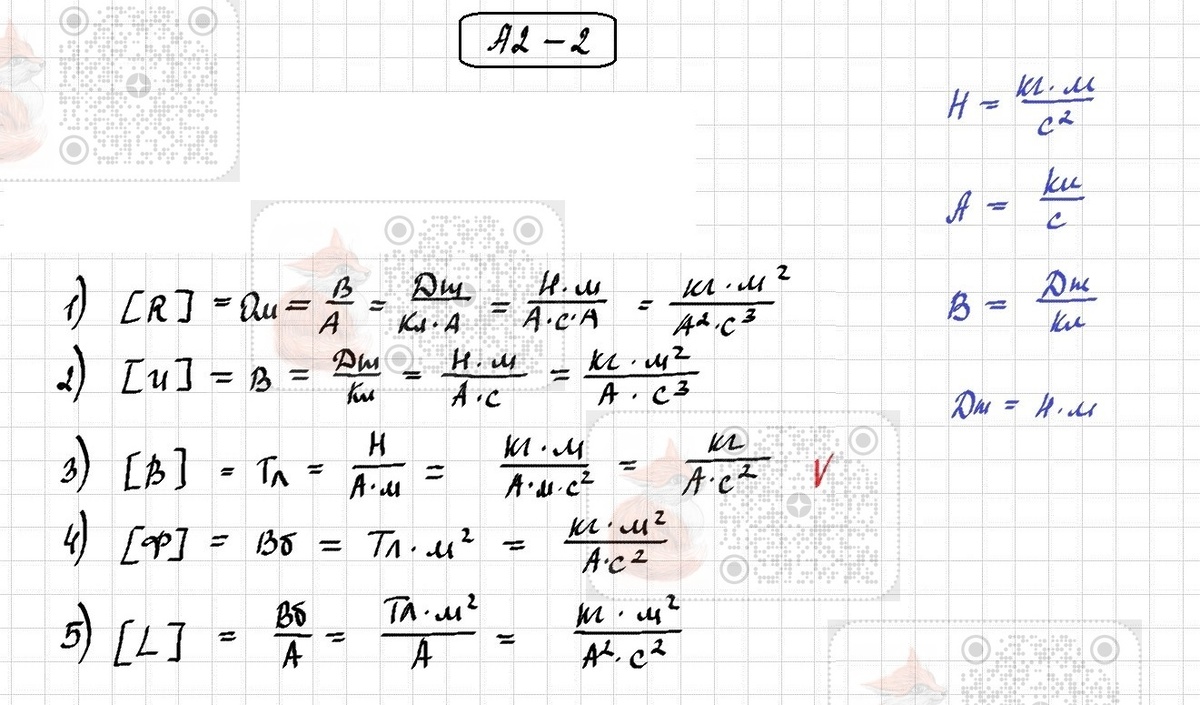 А2 – 2
Н = кг·м/с²
А = Кл/с
В = Дж/Кл
Дж = Н·м
1) [R] = Ом = В/А = Дж/(Кл·А) = Н·м/(А·с·А) = кг·м²/(А²·с³)
2) [U] = В = Дж/Кл = Н·м/(А·с) = кг·м²/(А·с³)
3) [B] = Тл = Н/(А·м) = кг·м/(А·м·с²) = кг/(А·с²) V
4) [Ф] = Вб = Тл·м² = кг·м²/(А·с²)
5) [L] = Вб/А = Тл·м²/А = кг·м²/(А²·с²)